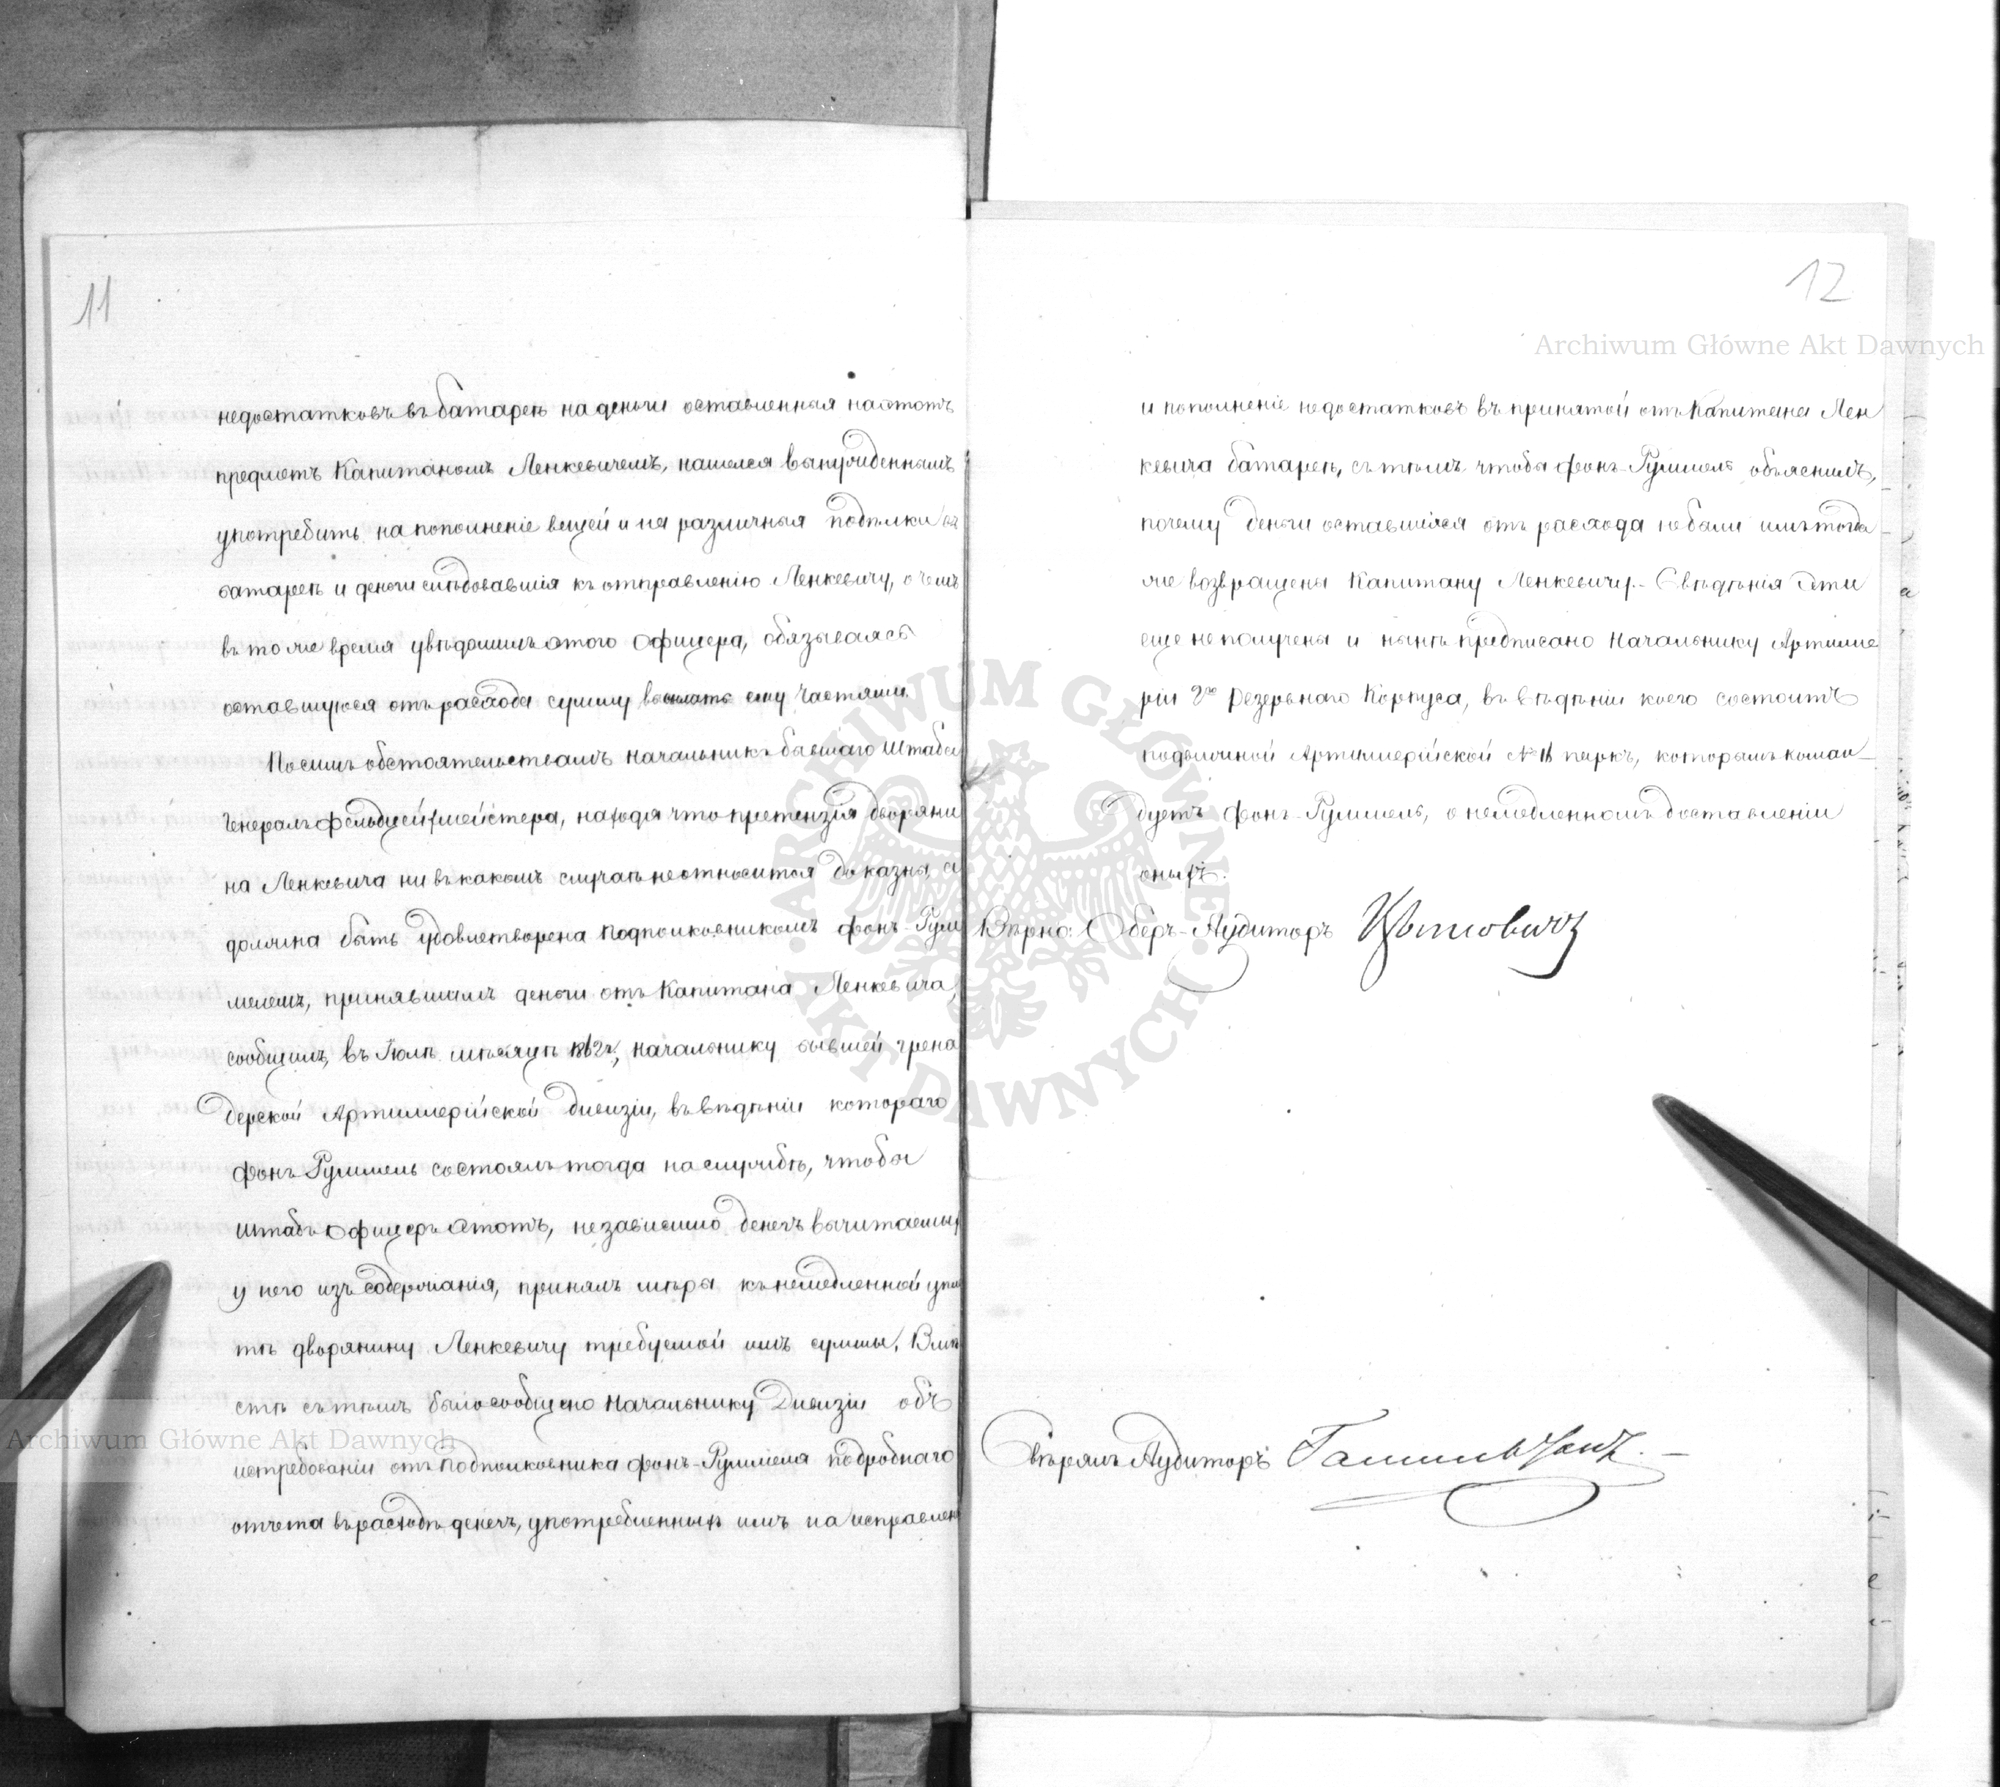 11
недостатковъ въ батареѣ на деньги оставленныя на этотъ
предметъ Капитаномъ Ленкевичемъ, нашелся вынужденнымъ
употребить на пополненіе вещей и на различныя подѣлки въ
батареѣ и деньги слѣдовавшія къ отправленію Ленкевичу, о чемъ
въ тоже время увѣдомилъ этого Офицера, обязываясь
оставшуюся отъ расхода сумму высылать ему частями.
По симъ обстоятельствамъ Начальникъ бывшаго Штаба
Генералъ Фельдцейхмейстера, находя что претензія дворяни
на Ленкевича ни въ какомъ случаѣ не относится до казны, а
должна быть удовлетворена Подполковникомъ фонъ-Рум
мелемъ, принявшимъ деньги отъ Капитана Ленкевича,
сообщилъ, въ Іюлѣ мѣсяцѣ 1862 г., Начальнику бывшей грена
дерской Артиллерійской дивизіи, въ вѣдѣніи котораго
фонъ Руммель состоялъ тогда на службѣ, чтобы
Штабъ Офицеръ этотъ, независимо денегъ вычитаемыхъ
у него изъ содержанія, принялъ мѣры къ немедленной упла
тѣ дворянину Ленкевичу требуемой имъ суммы. Вмѣ
стѣ съ тѣмъ было сообщено Начальнику Дивизіи объ
истребованіи отъ Подполковника фонъ-Руммеля подробнаго
отчета въ расходѣ денегъ, употребленныхъ имъ на исправлен
12
и пополненіе недостатковъ въ принятой отъ Капитана Лен
кевича батареѣ, съ тѣмъ чтобы фонъ-Руммель объяснилъ,
почему деньги оставшіяся отъ расхода не были имъ тогда
же возвращены Капитану Ленкевичу. Свѣдѣнія эти
еще не получены и нынѣ предписано Начальнику Артилле
ріи 2го Резервнаго Корпуса, въ вѣдѣніи коего состоитъ
подвижной Артиллерійской № паркъ, которымъ коман
дуетъ фонъ-Руммель, о немедленномъ доставленіи
оныхъ.
Вѣрно: Оберъ-Аудиторъ
Свѣрялъ Аудиторъ
Archiwum Główne Akt Dawnych
Archiwum Główne Akt Dawnych
ARCHIWUM GŁÓWNE AKT DAWNYCH